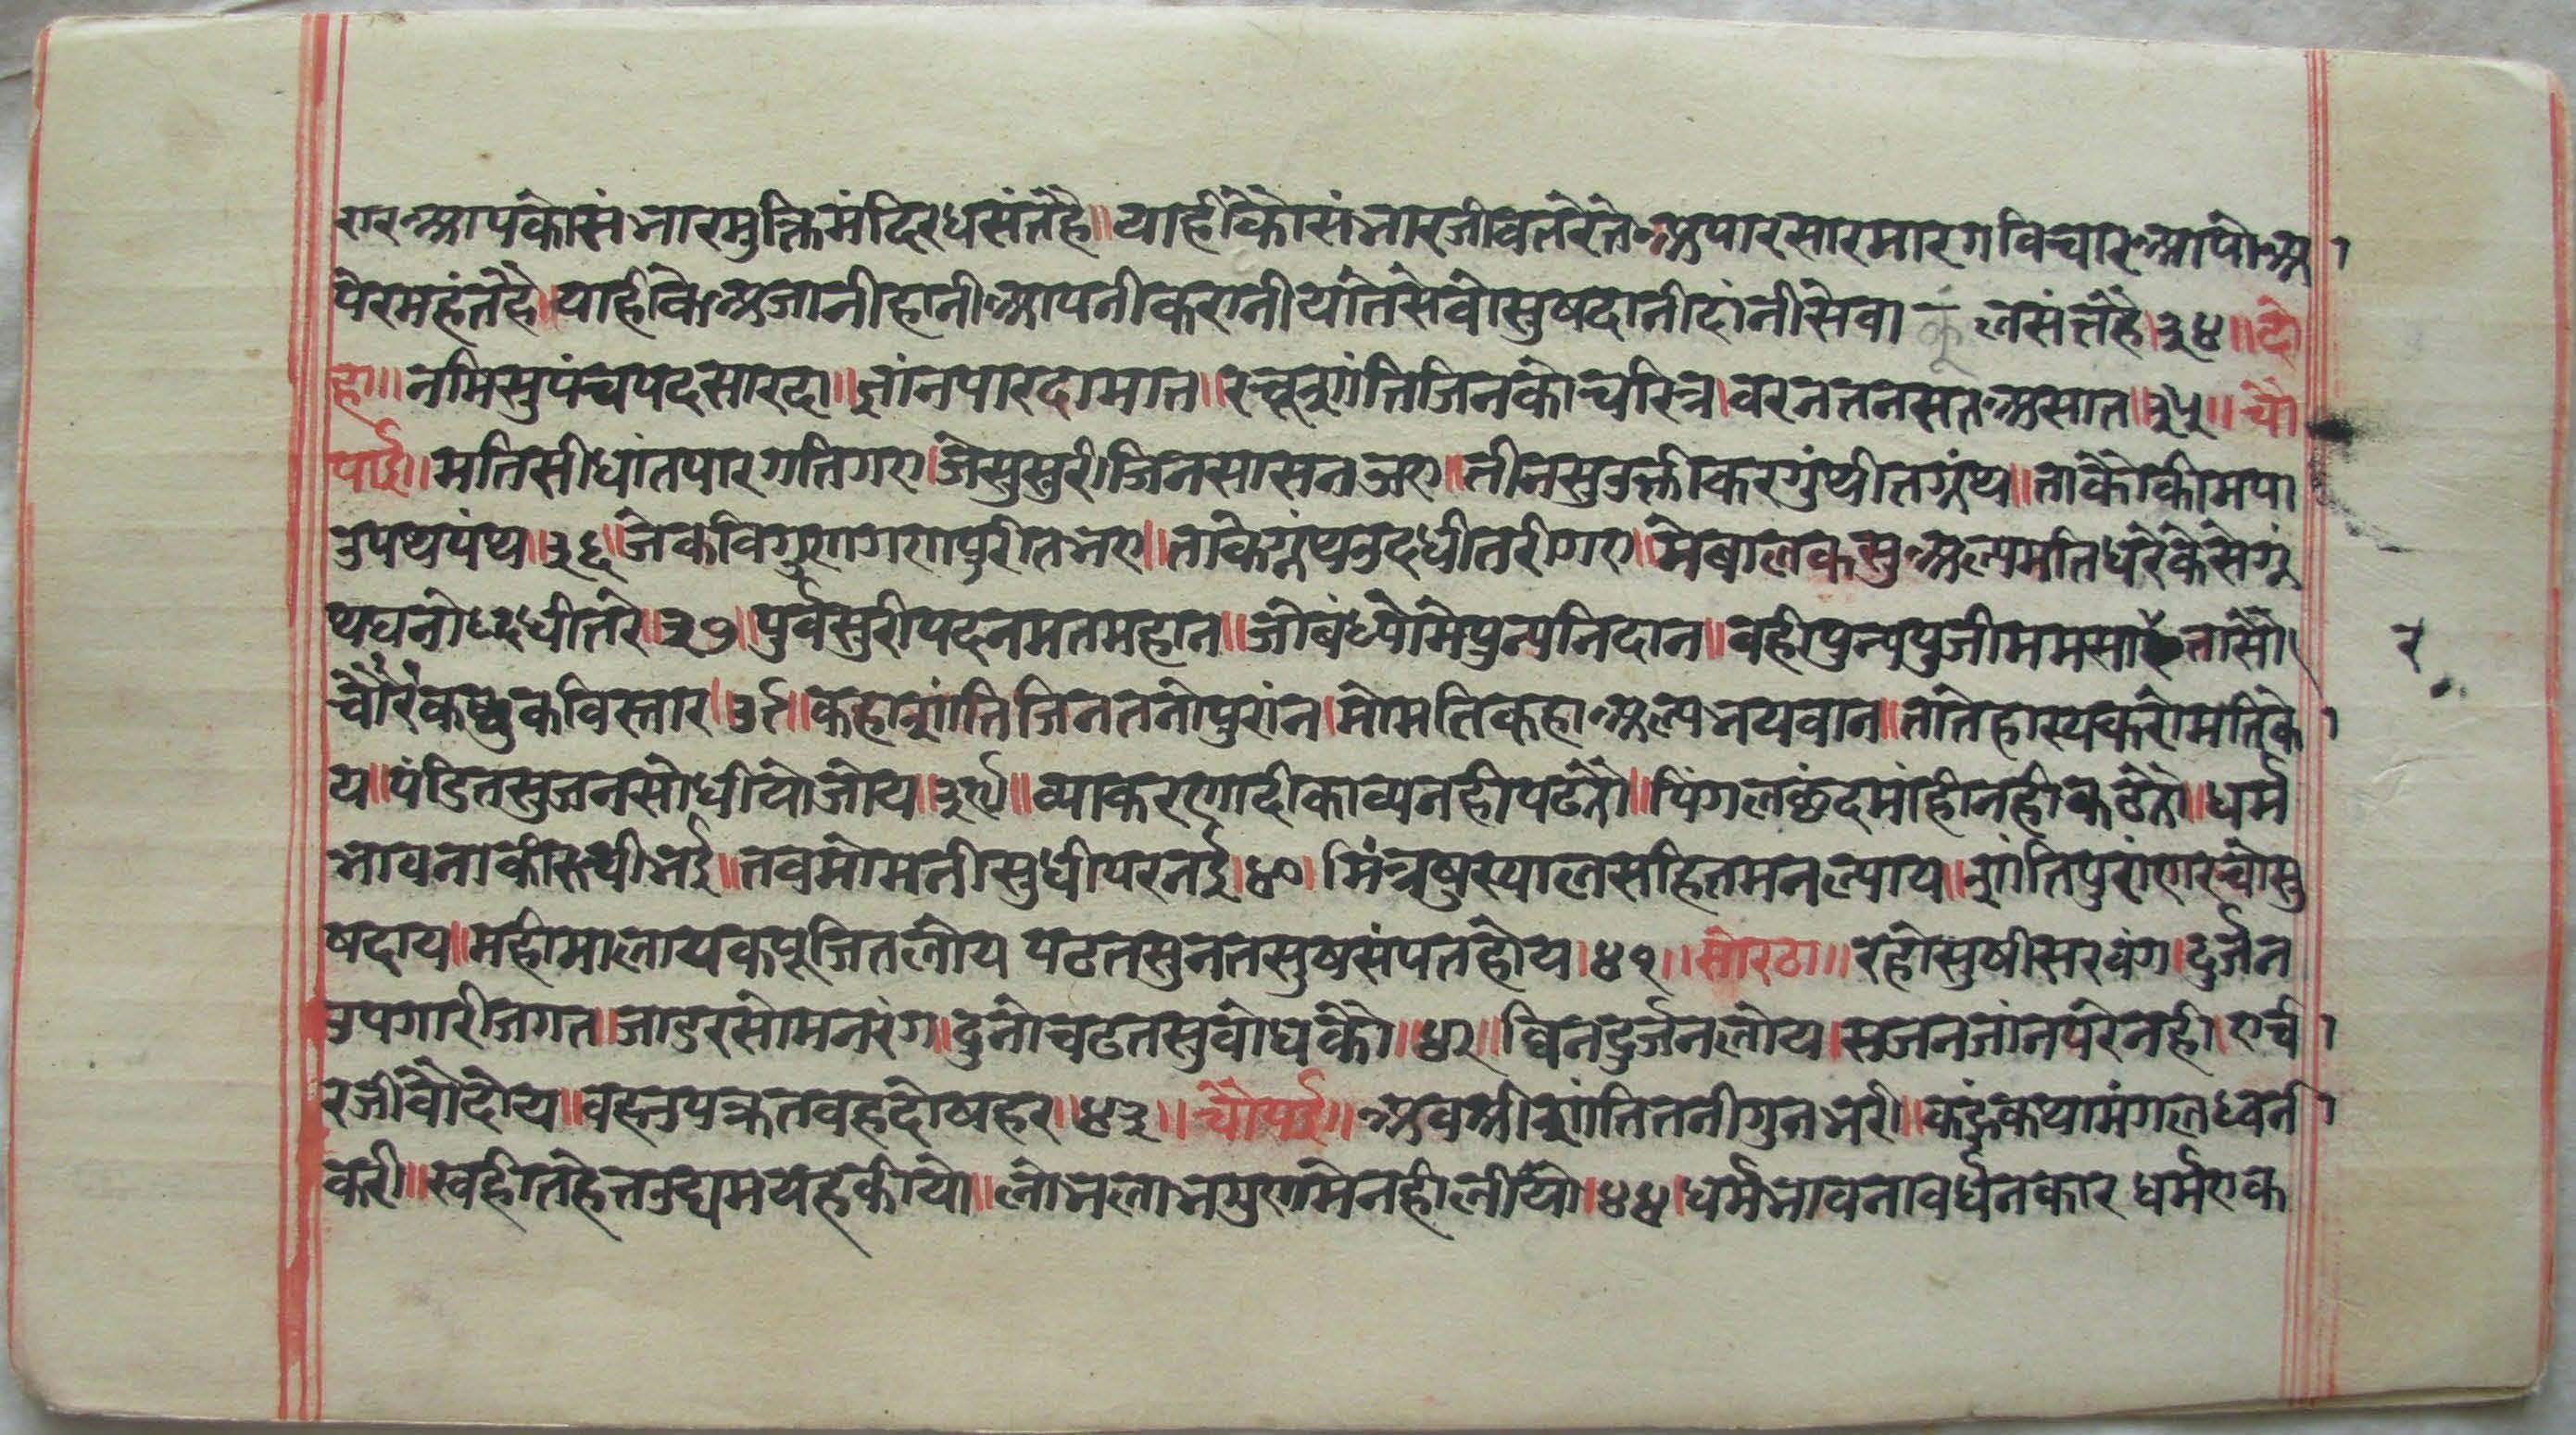 गर आप को संभार मुक्ति मंदिर धसंत है॥ याही कौ संभार जीव तरे ते अपार सार मारग विचार आपो अ
परे महंत है। याही के अजानी हानी आपनी करानी याते सेवो सुषदानी दांनी सेवा कूं लसंत है। ३४॥ दो
हा॥ नमि सुपंच पद सारदा॥ ज्ञांन पारदा मात॥ रचू शांति जिन को चरित्र। वरनत नसत असात॥ ३५॥ चौ
पाई॥ मति सीधांत पार गति गए। जे सु सुरी जिन सासन भए॥ तीन सु उक्ती कर गुंथीत ग्रंथ॥ ताकौ कीम पा
उ पथ पंथ॥ ३६॥ जे कवि गुण गण पुरीत भए॥ ताके ग्रंथ उदधी तरी गए॥ मे बालक सु अल्प मति धरे कैसे गं्र
थ घनोध्दधी तरे॥ ३७॥ पुर्व सुरी पद नमत महान॥ जो बंध्यो मे पुन्य निदान॥ वही पुन्य पुजी मम सार तासौ
चौरं कछुक विस्तार॥ ३८॥ कहा शांति जिन तनो पुरांन। मो मति कहा अल्प नयवान॥ ताते हास्य करो मति को
य॥ पंडित सुजन सोधीयो जोय॥ ३९॥ व्याकरणादी काव्य नही पढे तो॥ पिंगल छंद मांही नही कढे तो॥ धर्म
भावना की रुची भई॥ तव मो मनी सुधी परनई॥ ४०॥ मिंत्र षुस्याल सहित मन ल्याय॥ शांति पुरांण रचो सु
षदाय॥ महीमा लायक पूजित लोय पठत सुनत सुष संपत होय॥ ४१॥ सोरठा॥ रहो सुषी सरवंग। दुर्जन
उपगारी जगत॥ जा डर सो मन रंग॥ दुनो चढत सुवोध कौ॥ ४२॥ विन दुर्जन लोय। सजन जांन परे नही। एचि
र जीवौ दोय॥ वस्तु पक्रत वह दोष हर॥ ४३॥ चौपई॥ अव श्री शांति तनी गुन भरी॥ कहूं कथा मंगल ध्वनि
करी॥ स्वहीत हेत उद्यम यह कीयो॥ लोभ लाभ गुण मे नही लीयो॥ ४४॥ धर्म भावना वर्धन कार धर्म एक